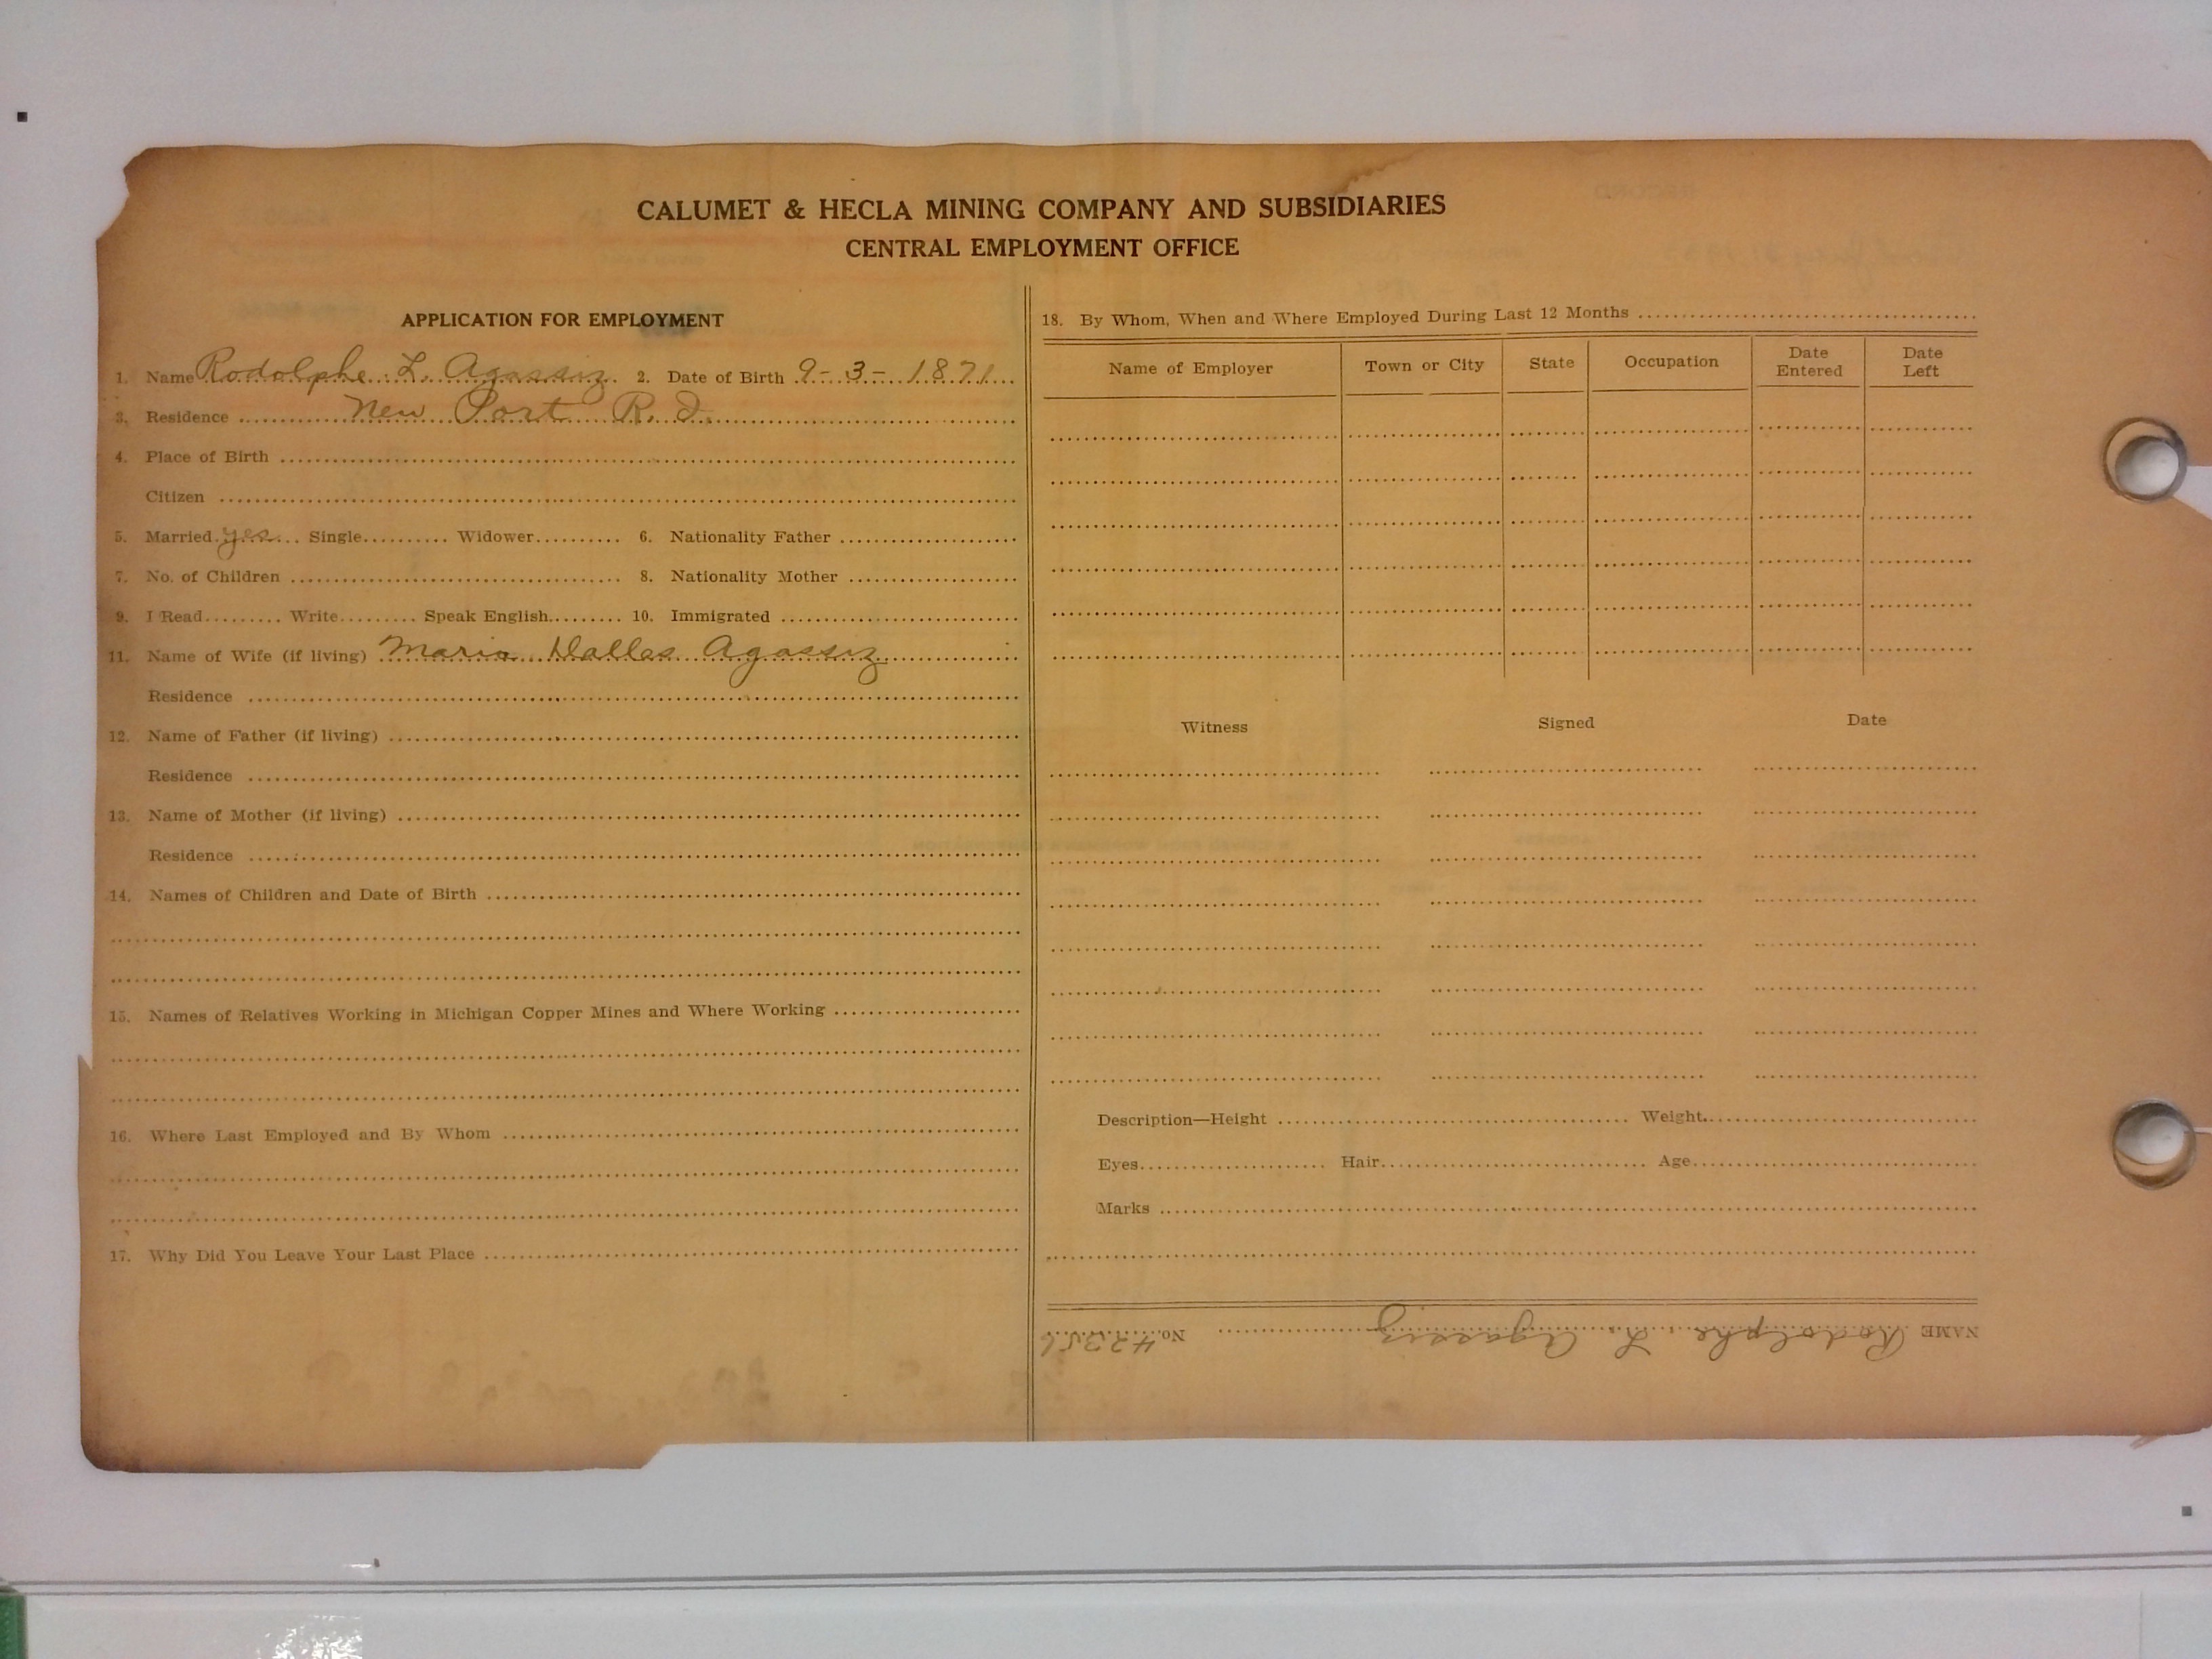 CALUMET & HECLA MINING COMPANY AND SUBSIDIARIES
CENTRAL EMPLOYMENT OFFICE
APPLICATION FOR EMPLOYMENT
1. Name Rodolphe L. Agassiz 2. Date of Birth 9-3-1871
3. Residence New Port R.I.
4. Place of Birth
Citizen
5. Married yes Single Widower 6. Nationality Father
7. No. of Children 8. Nationality Mother
9. I Read Write Speak English 10. Immigrated
11. Name of Wife (if living) Maria Dallas Agassiz
Residence
12. Name of Father (if living)
Residence
13. Name of Mother (if living)
Residence
14. Names of Children and Date of Birth
15. Names of Relatives Working in Michigan Copper Mines and Where Working
16. Where Last Employed and By Whom
17. Why Did You Leave Your Last Place
18. By Whom, When and Where Employed During Last 12 Months
Name of Employer Town or City State Occupation Date Entered Date Left
Witness Signed Date
Description—Height Weight
Eyes Hair Age
Marks
NAME Rodolphe L. Agassiz No. 42356